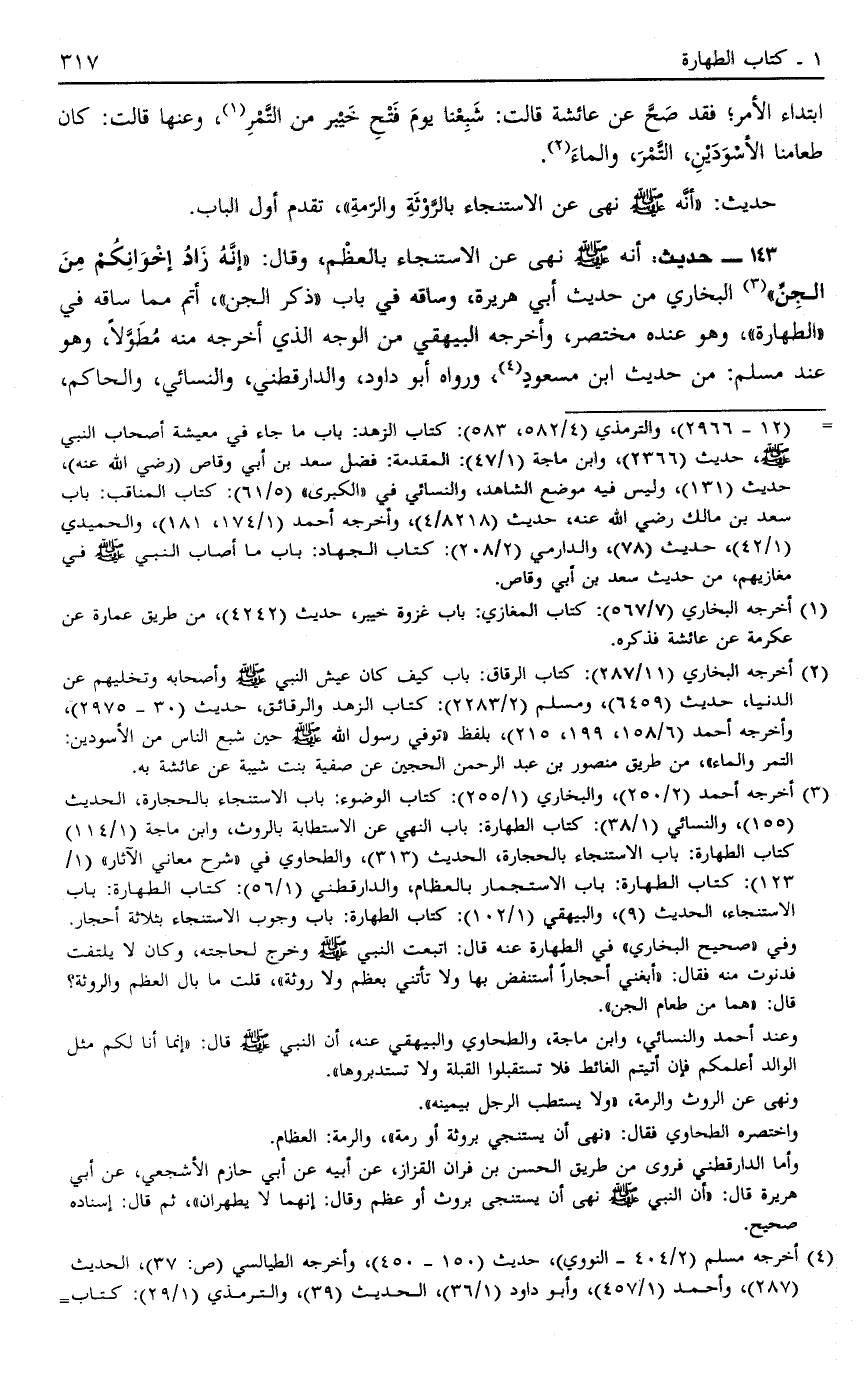 ١ ـ كتاب الطهارة ٣١٧
ابتداء الأمر؛ فقد صَحَّ عن عائشة قالت: شَبِعْنا يومَ فَتْحِ خَيْبر من التَّمْرِ(١)، وعنها قالت: كان
طعامنا الأسْوَدَيْنِ، التَّمْرَ، والماءَ(٢).
حديث: «أنَّه ﷺ نهى عن الاستنجاء بالرَّوْثَةِ والرّمةِ»، تقدم أول الباب.
١٤٣ ـــ حديث: أنه ﷺ نهى عن الاستنجاء بالعظْم، وقال: «إنَّهُ زَادُ إخْوَانِكُمْ مِنَ
الجِنِّ»(٣) البخاري من حديث أبي هريرة، وساقه في باب «ذكر الجن»، أتم مما ساقه في
«الطهارة»، وهو عنده مختصر، وأخرجه البيهقي من الوجه الذي أخرجه منه مُطَوَّلاً، وهو
عند مسلم: من حديث ابن مسعودٍ(٤)، ورواه أبو داود، والدارقطني، والنسائي، والحاكم،
= (١٢ ـ ٢٩٦٦)، والترمذي (٥٨٢/٤، ٥٨٣): كتاب الزهد: باب ما جاء في معيشة أصحاب النبي
ﷺ، حديث (٢٣٦٦)، وابن ماجة (٤٧/١): المقدمة: فضل سعد بن أبي وقاص (رضي الله عنه)،
حديث (١٣١)، وليس فيه موضع الشاهد، والنسائي في «الكبرى» (٦١/٥): كتاب المناقب: باب
سعد بن مالك رضي الله عنه، حديث (٤/٨٢١٨)، وأخرجه أحمد (١٧٤/١، ١٨١)، والحميدي
(٤٢/١)، حديث (٧٨)، والدارمي (٢٠٨/٢): كتاب الجهاد: باب ما أصاب النبي ﷺ في
مغازيهم، من حديث سعد بن أبي وقاص.
(١) أخرجه البخاري (٥٦٧/٧): كتاب المغازي: باب غزوة خيبر، حديث (٤٢٤٢)، من طريق عمارة عن
عكرمة عن عائشة فذكره.
(٢) أخرجه البخاري (٢٨٧/١١): كتاب الرقاق: باب كيف كان عيش النبي ﷺ وأصحابه وتخليهم عن
الدنيا، حديث (٦٤٥٩)، ومسلم (٢٢٨٣/٢): كتاب الزهد والرقائق، حديث (٣٠ ـ ٢٩٧٥)،
وأخرجه أحمد (١٥٨/٦، ١٩٩، ٢١٥)، بلفظ «توفي رسول الله ﷺ حين شبع الناس من الأسودين:
التمر والماء»، من طريق منصور بن عبد الرحمن الحجبين عن صفية بنت شيبة عن عائشة به.
(٣) أخرجه أحمد (٢٥٠/٢)، والبخاري (٢٥٥/١): كتاب الوضوء: باب الاستنجاء بالحجارة، الحديث
(١٥٥)، والنسائي (٣٨/١): كتاب الطهارة: باب النهي عن الاستطابة بالروث، وابن ماجة (١١٤/١)
كتاب الطهارة: باب الاستنجاء بالحجارة، الحديث (٣١٣)، والطحاوي في «شرح معاني الآثار» (١/
١٢٣): كتاب الطهارة: باب الاستجمار بالعظام، والدارقطني (٥٦/١): كتاب الطهارة: باب
الاستنجاء، الحديث (٩)، والبيهقي (١٠٢/١): كتاب الطهارة: باب وجوب الاستنجاء بثلاثة أحجار.
وفي «صحيح البخاري» في الطهارة عنه قال: اتبعت النبي ﷺ وخرج لحاجته، وكان لا يلتفت
فدنوت منه فقال: «أبغني أحجاراً أستنفض بها ولا تأتني بعظم ولا روثة»، قلت ما بال العظم والروثة؟
قال: «هما من طعام الجن».
وعند أحمد والنسائي، وابن ماجة، والطحاوي والبيهقي عنه، أن النبي ﷺ قال: «إنما أنا لكم مثل
الوالد أعلمكم فإن أتيتم الغائط فلا تستقبلوا القبلة ولا تستدبروها».
ونهى عن الروث والرمة، «ولا يستطب الرجل بيمينه».
واختصره الطحاوي فقال: «نهى أن يستنجي بروثة أو رمة»، والرمة: العظام.
وأما الدارقطني فروى من طريق الحسن بن فران القزاز، عن أبيه عن أبي حازم الأشجعي، عن أبي
هريرة قال: «أن النبي ﷺ نهى أن يستنجى بروث أو عظم وقال: إنهما لا يطهران»، ثم قال: إسناده
صحيح.
(٤) أخرجه مسلم (٤٠٤/٢ ـ النووي)، حديث (١٥٠ ـ ٤٥٠)، وأخرجه الطيالسي (ص: ٣٧)، الحديث
(٢٨٧)، وأحمد (٤٥٧/١)، وأبو داود (٣٦/١)، الحديث (٣٩)، والترمذي (٢٩/١): كتاب=